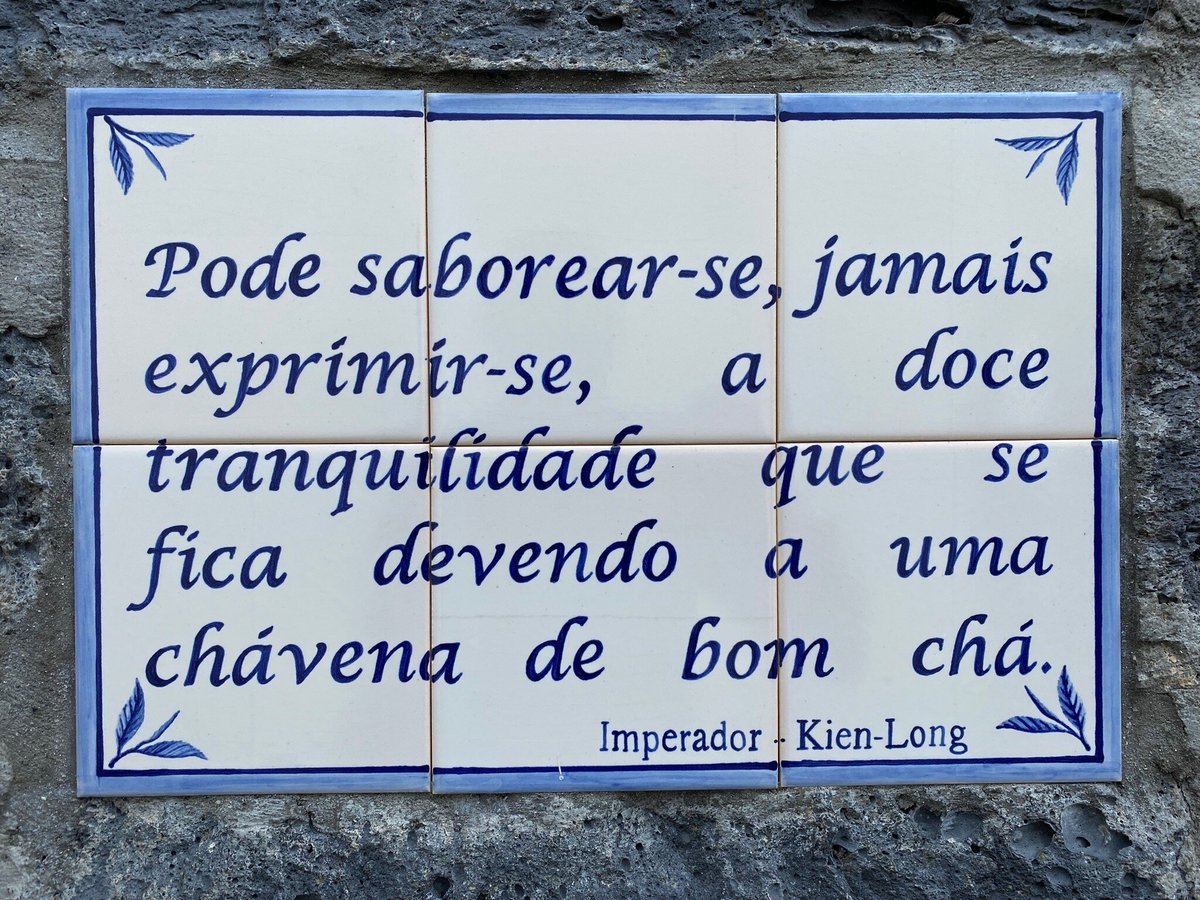 Pode saborear-se, jamais
exprimir-se, a doce
tranquilidade que se
fica devendo a uma
chávena de bom chá.
Imperador - Kien-Long